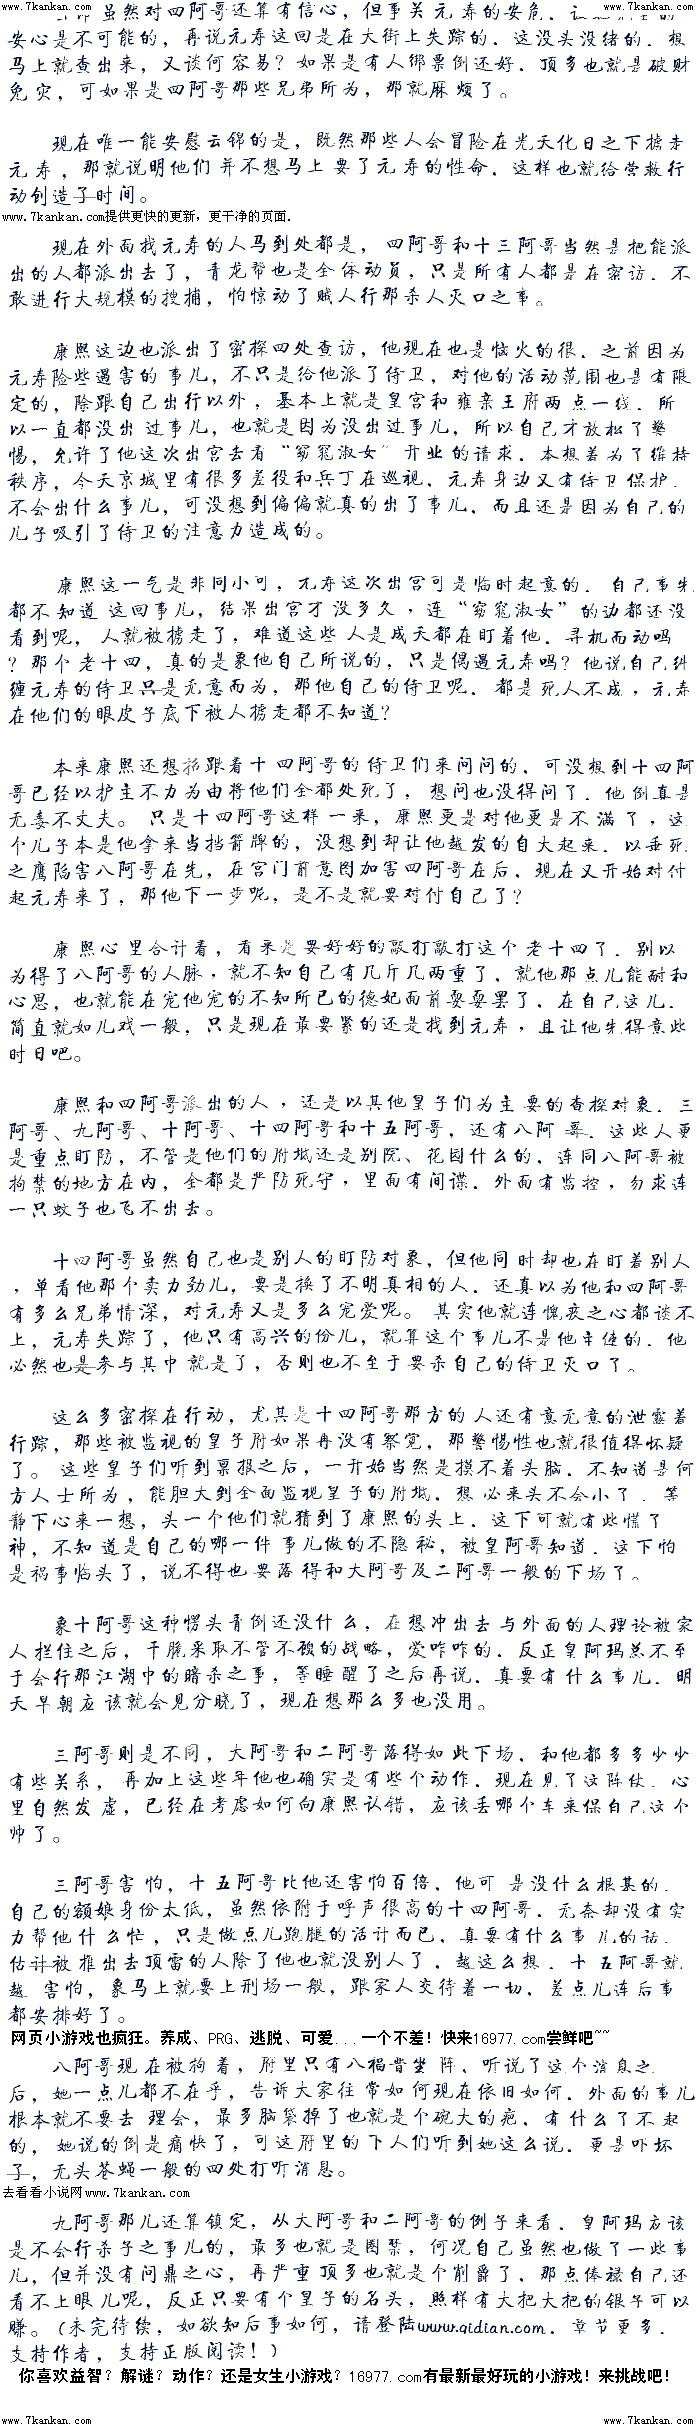 www.7kankan.com www.7kankan.com
虽然对四阿哥还算有信心，但事关元寿的安危．
安心是不可能的，再说元寿这回是在大街上失踪的．这没头没绪的．想
马上就查出来，又谈何容易？如果是有人绑票倒还好．顶多也就是破财
免灾，可如果是四阿哥那些兄弟所为，那就麻烦了。
现在唯一能安慰云锦的是，既然那些人会冒险在光天化日之下掳走
元寿，那就说明他们并不想马上要了元寿的性命．这样也就给营救行
动创造了时间。
www.7kankan.com提供更快的更新，更干净的页面．
现在外面找元寿的人马到处都是，四阿哥和十三阿哥当然是把能派
出的人都派出去了，青龙帮也是全体动员，只是所有人都是在密访．不
敢进行大规模的搜捕，怕惊动了贼人行那杀人灭口之事。
康熙这边也派出了密探四处查访，他现在也是恼火的很．之前因为
元寿险些遇害的事儿，不只是给他派了侍卫，对他的活动范围也是有限
定的，除跟自己出行以外，基本上就是皇宫和雍亲王府两点一线．所
以一直都没出过事儿，也就是因为没出过事儿，所以自己才放松了警
惕，允许了他这次出宫去看“窈窕淑女”开业的请求．本想着为了维持
秩序，今天京城里有很多差役和兵丁在巡视．元寿身边又有侍卫保护．
不会出什么事儿，可没想到偏偏就真的出了事儿．而且还是因为自己的
儿子吸引了侍卫的注意力造成的。
康熙这一气是非同小可，元寿这次出宫可是临时起意的．自己事先
都不知道这回事儿，结果出宫才没多久，连“窈窕淑女”的边都还没
看到呢，人就被掳走了，难道这些人是成天都在盯着他．寻机而动吗
？那个老十四，真的是象他自己所说的，只是偶遇元寿吗？他说自己纠
缠元寿的侍卫只是无意而为，那他自己的侍卫呢．都是死人不成，元寿
在他们的眼皮子底下被人掳走都不知道？
本来康熙还想招跟着十四阿哥的侍卫们来问问的．可没想到十四阿
哥已经以护主不力为由将他们全都处死了，想问也没得问了．他倒真是
无毒不丈夫。只是十四阿哥这样一来，康熙更是对他更是不满了，这
个儿子本是他拿来当挡箭牌的，没想到却让他越发的自大起来．以垂死
之鹰陷害八阿哥在先，在宫门前意图加害四阿哥在后．现在又开始对付
起元寿来了，那他下一步呢，是不是就要对付自己了？
康熙心里合计着，看来是要好好的敲打敲打这个老十四了．别以
为得了八阿哥的人脉，就不知自己有几斤几两重了．就他那点儿能耐和
心思，也就能在宠他宠的不知所已的德妃面前耍耍罢了．在自己这儿．
简直就如儿戏一般，只是现在最要紧的还是找到元寿，且让他先得意些
时日吧。
康熙和四阿哥派出的人，还是以其他皇子们为主要的查探对象．三
阿哥、九阿哥、十阿哥、十四阿哥和十五阿哥．还有八阿哥．这些人更
是重点盯防，不管是他们的府坻还是别院、花园什么的．连同八阿哥被
拘禁的地方在内，全都是严防死守，里面有间谍．外面有监控，勿求连
一只蚊子也飞不出去。
十四阿哥虽然自己也是别人的盯防对象，但他同时却也在盯着别人
，单看他那个卖力劲儿，要是换了不明真相的人．还真以为他和四阿哥
有多么兄弟情深，对元寿又是多么宠爱呢。其实他就连愧疚之心都谈不
上，元寿失踪了，他只有高兴的份儿，就算这个事儿不是他主使的．他
必然也是参与其中就是了，否则也不至于要杀自己的侍卫灭口了。
这么多密探在行动，尤其是十四阿哥那方的人还有意无意的泄露着
行踪，那些被监视的皇子府如果再没有察觉，那警惕性也就很值得怀疑
了。这些皇子们听到禀报之后，一开始当然是摸不着头脑．不知道是何
方人士所为，能胆大到全面监视皇子的府坻．想必来头不会小了．等
静下心来一想，头一个他们就猜到了康熙的头上．这下可就有些慌了
神，不知道是自己的哪一件事儿做的不隐秘，被皇阿哥知道．这下怕
是祸事临头了，说不得也要落得和大阿哥及二阿哥一般的下场了。
象十阿哥这种愣头青倒还没什么，在想冲出去与外面的人理论被家
人拦住之后，干脆采取不管不顾的战略，爱咋咋的．反正皇阿玛总不至
于会行那江湖中的暗杀之事，等睡醒了之后再说．真要有什么事儿．明
天早朝应该就会见分晓了，现在想那么多也没用。
三阿哥则是不同，大阿哥和二阿哥落得如此下场．和他都多多少少
有些关系，再加上这些年他也确实是有些个动作．现在见了这阵仗．心
里自然发虚，已经在考虑如何向康熙认错，应该丢哪个车来保自己这个
帅了。
三阿哥害怕，十五阿哥比他还害怕百倍．他可是没什么根基的．
自己的额娘身份太低，虽然依附于呼声很高的十四阿哥．无奈却没有实
力帮他什么忙，只是做点儿跑腿的活计而已．真要有什么事儿的话．
估计被推出去顶雷的人除了他也就没别人了．越这么想．十五阿哥就
越害怕，象马上就要上刑场一般，跟家人交待着一切．差点儿连后事
都安排好了。
网页小游戏也疯狂。养成、PRG、逃脱、可爱...一个不差！快来16977.com尝鲜吧~~
八阿哥现在被拘着，府里只有八福晋坐阵．听说了这个消息之
后，她一点儿都不在乎，告诉大家往常如何现在依旧如何．外面的事儿
根本就不要去理会，最多脑袋掉了也就是个碗大的疤．有什么了不起
的，她说的倒是痛快了，可这府里的下人们听到她这么说．更是吓坏
了，无头苍蝇一般的四处打听消息。
去看看小说网www.7kankan.com
九阿哥那儿还算镇定，从大阿哥和二阿哥的例子来看．皇阿玛应该
是不会行杀子之事儿的，最多也就是圈禁，何况自己虽然也做了一些事
儿，但并没有问鼎之心，再严重顶多也就是个削爵了．那点俸禄自己还
看不上眼儿呢，反正只要有个皇子的名头，照样有大把大把的银子可以
赚。（未完待续，如欲知后事如何，请登陆www.qidian.com．章节更多．
支持作者，支持正版阅读！）
你喜欢益智？解谜？动作？还是女生小游戏？16977.com有最新最好玩的小游戏！来挑战吧！
www.7kankan.com www.7kankan.com